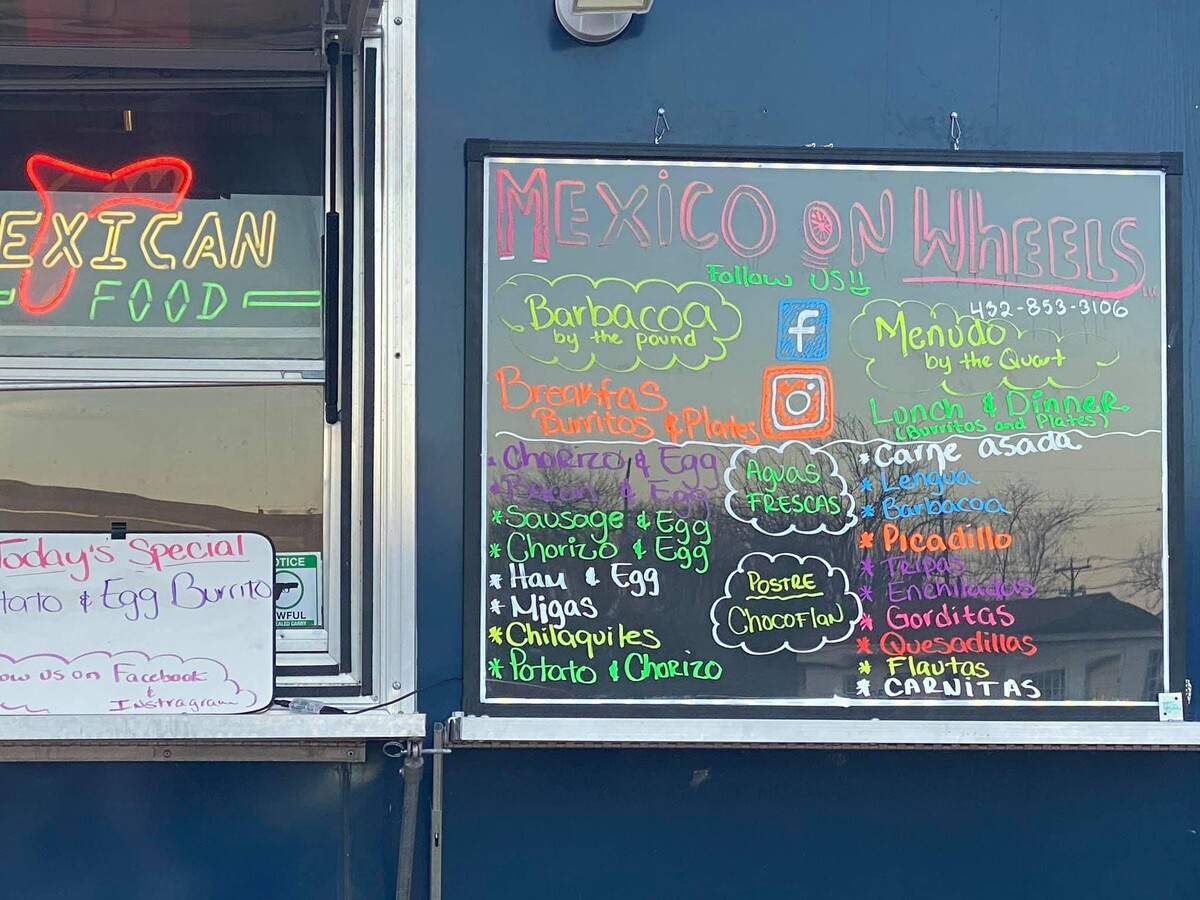 EXICAN
FOOD
Today's Special
tato & Egg Burrito
ow us on Facebook
&
Instragram
OTICE
WFUL
MEXICO ON WHEELS
Follow US!!
432-853-3106
Barbacoa
by the pound
f
Menudo
by the Quart
Breakfas
Burritos & Plates
Lunch & Dinner
(Burritos and Plates)
* Chorizo & Egg
* Bacon & Egg
* Sausage & Egg
* Chorizo & Egg
* Ham & Egg
* Migas
* Chilaquiles
* Potato & Chorizo
AGUAS
FRESCAS
POSTRE
CHOCOFLAN
* Carne asada
* Lengua
* Barbacoa
* Picadillo
* Tripas
* Enchiladas
* Gorditas
* Quesadillas
* Flautas
* CARNITAS